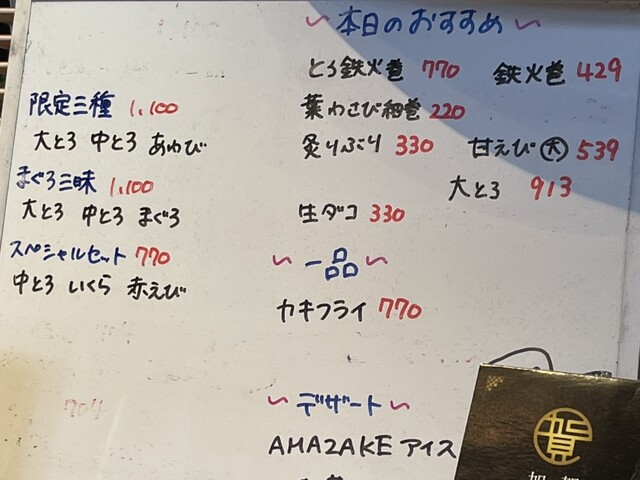 〜本日のおすすめ〜
とろ鉄火巻 770 鉄火巻 429
葉わさび細巻 220
炙りぶり 330 甘えび㊛ 539
大とろ 913
生ダコ 330
〜一品〜
カキフライ 770
〜デザート〜
AMAZAKE アイス
限定三種 1,100
大とろ 中とろ あわび
まぐろ三昧 1,100
大とろ 中とろ まぐろ
スペシャルセット 770
中とろ いくら 赤えび
704
賀